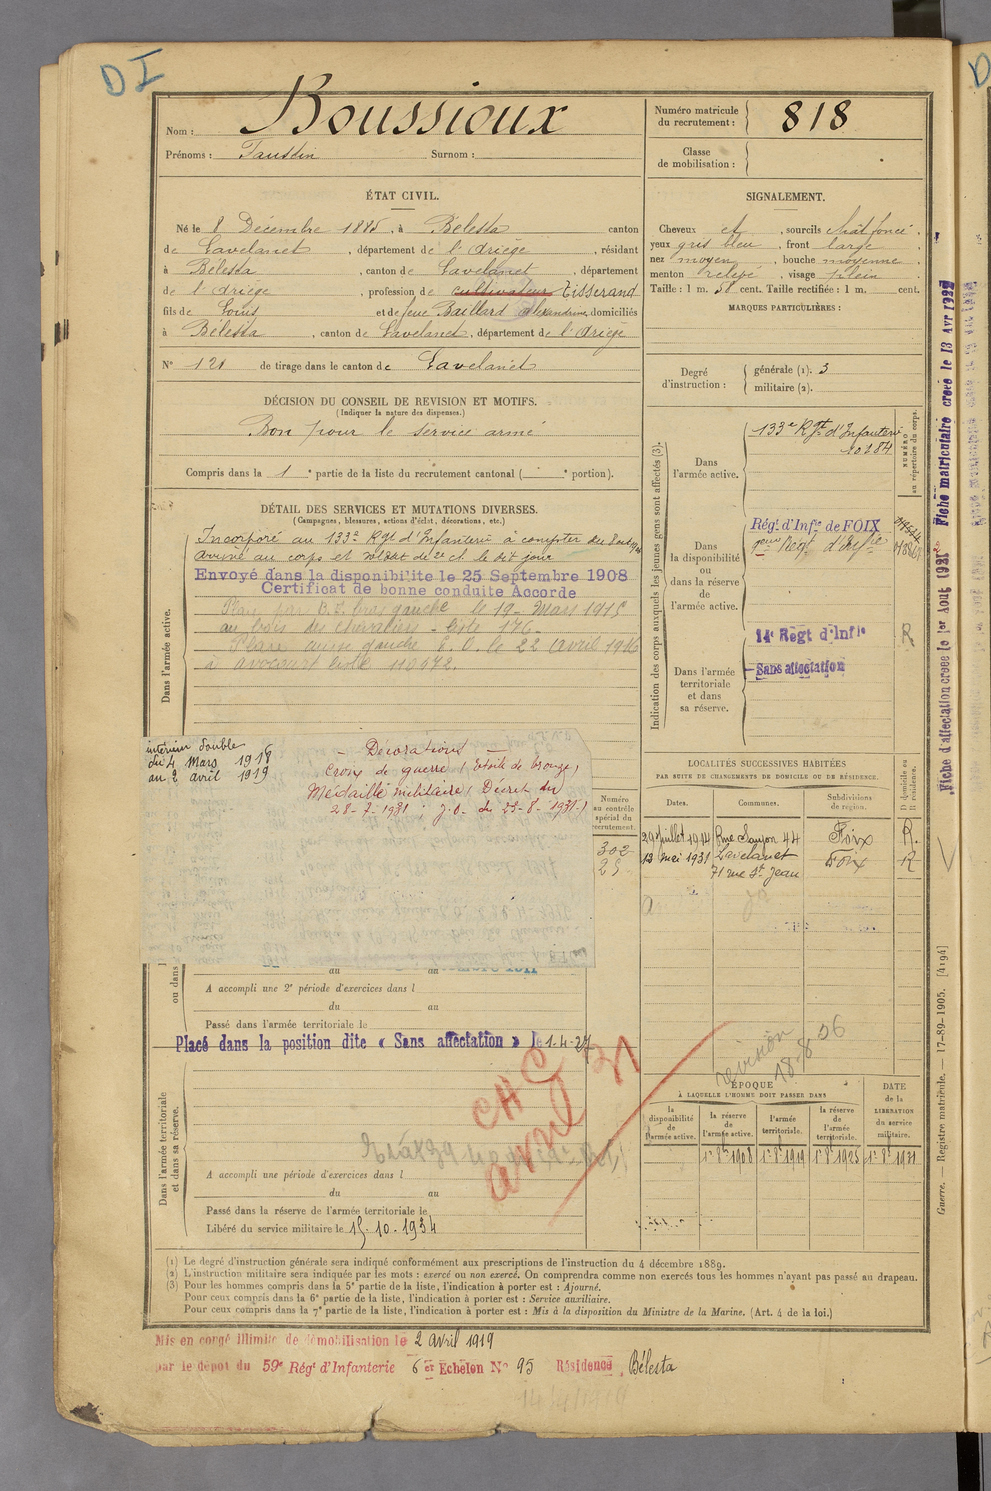 DI
Nom : Boussioux
Prénoms : Faustin Surnom :
Numéro matricule du recrutement : 818
Classe de mobilisation :
ÉTAT CIVIL.
Né le 8 Décembre 1885, à Bélesta canton
de Lavelanet, département de l'Ariège, résidant
à Bélesta, canton de Lavelanet, département
de l'Ariège, profession de cultivateur Tisserand
fils de Louis et de feue Baillard Alexandrine, domiciliés
à Bélesta, canton de Lavelanet, département de l'Ariège
N° 121 de tirage dans le canton de Lavelanet
SIGNALEMENT.
Cheveux et, sourcils chât foncé.
yeux gris bleu, front large
nez moyen, bouche moyenne.
menton relevé, visage plein
Taille : 1 m. 58 cent. Taille rectifiée : 1 m. cent.
MARQUES PARTICULIÈRES :
Degré d'instruction :
générale (1). 3
militaire (2).
DÉCISION DU CONSEIL DE REVISION ET MOTIFS.
(Indiquer la nature des dispenses.)
Bon pour le service armé
Compris dans la 1 e partie de la liste du recrutement cantonal ( e portion).
DÉTAIL DES SERVICES ET MUTATIONS DIVERSES.
(Campagnes, blessures, actions d'éclat, décorations, etc.)
Dans l'armée active.
Incorporé au 133e Rgt d'Infanterie à compter du 8 oct
arrivé au corps et soldat de 2e cl. le dit jour
Envoyé dans la disponibilite le 25 Septembre 1908
Certificat de bonne conduite Accorde
Plaie par B. bras gauche le 19 Mars 1915
au bois des chevaliers - liste 176
Plaie cuisse gauche E.O. le 22 avril 1916
à avocourt liste 110972.
Indication des corps auxquels les jeunes gens sont affectés (3).
NUMÉRO au répertoire du corps.
Dans l'armée active.
133e Rgt d'Infanterie
10284
Dans la disponibilité ou dans la réserve de l'armée active.
Régt d'Infie de FOIX
Dans l'armée territoriale et dans sa réserve.
14e Regt d'Infie R
Sans affectation
intérieur double
du 4 Mars 1918
au 2 avril 1919
- Décorations -
Croix de guerre (étoile de bronze)
Médaille militaire (Décret du
28-7-1931 ; J.O. du 25-8-1931)
Numéro au contrôle spécial du recrutement.
302
25
LOCALITÉS SUCCESSIVES HABITÉES
PAR SUITE DE CHANGEMENTS DE DOMICILE OU DE RÉSIDENCE.
Dates. Communes. Subdivisions de région. D domicile ou R résidence.
29 juillet 1914 Rue Saujon 44 Foix R.
12 mei 1931 Lavelanet Foix R
71 rue St Jean
ou dans
du au
A accompli une 2e période d'exercices dans l
du au
Passé dans l'armée territoriale le
Placé dans la position dite « Sans affectation » le 1-4-27
Dans l'armée territoriale et dans sa réserve.
A accompli une période d'exercices dans l
du au
Passé dans la réserve de l'armée territoriale le
Libéré du service militaire le 15-10-1934
avril 31
revision
18-8-06
ÉPOQUE
À LAQUELLE L'HOMME DOIT PASSER DANS
la disponibilité de l'armée active.
la réserve de l'armée active.
l'armée territoriale.
la réserve de l'armée territoriale.
DATE de la LIBÉRATION du service militaire.
1er 8bre 1908 1er 8 1919 1er 8 1925 1er 8 1931
(1) Le degré d'instruction générale sera indiqué conformément aux prescriptions de l'instruction du 4 décembre 1889.
(2) L'instruction militaire sera indiquée par les mots : exercé ou non exercé. On comprendra comme non exercés tous les hommes n'ayant pas passé au drapeau.
(3) Pour les hommes compris dans la 5e partie de la liste, l'indication à porter est : Ajourné.
Pour ceux compris dans la 6e partie de la liste, l'indication à porter est : Service auxiliaire.
Pour ceux compris dans la 7e partie de la liste, l'indication à porter est : Mis à la disposition du Ministre de la Marine. (Art. 4 de la loi.)
Mis en congé illimité de démobilisation le 2 avril 1919
par le dépot du 59e Régt d'Infanterie 6 er Echelon N° 95 Résidence Bélesta
Fiche matriculaire créée le 13 Avr 1922
Fiche d'affectation créée le 1er Aout 192
Guerre. — Registre matricule. — 17-89-1905. [4194]